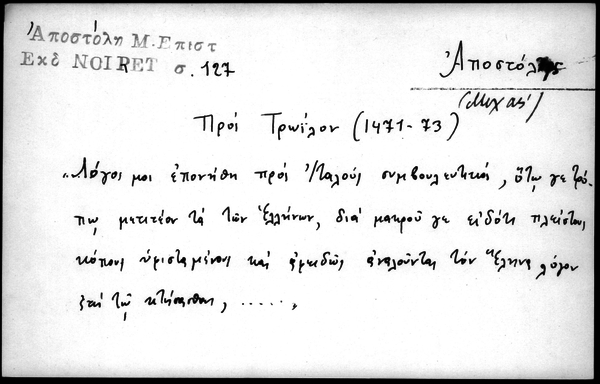 Ἀποστόλη Μ. Επιστ
Εκδ NOIRET σ. 127
Ἀποστόλης
(Μιχαή)
Πρὸς Τρωΐλον (1471-73)
"Λόγος μοι ἐπονήθη πρὸς Ἰταλοὺς συμβουλευτικός, ὅτῳ γε τρό-
πῳ μετιτέον τὰ τῶν Ἑλλήνων, διὰ μακροῦ γε εἰδότι πλείστους
κόπους ὑφισταμένους καὶ ἀφειδῶς ἀναλοῦντας τὸν Ἕλληνα λόγον
ἐπὶ τῷ κτήσασθαι, .....,